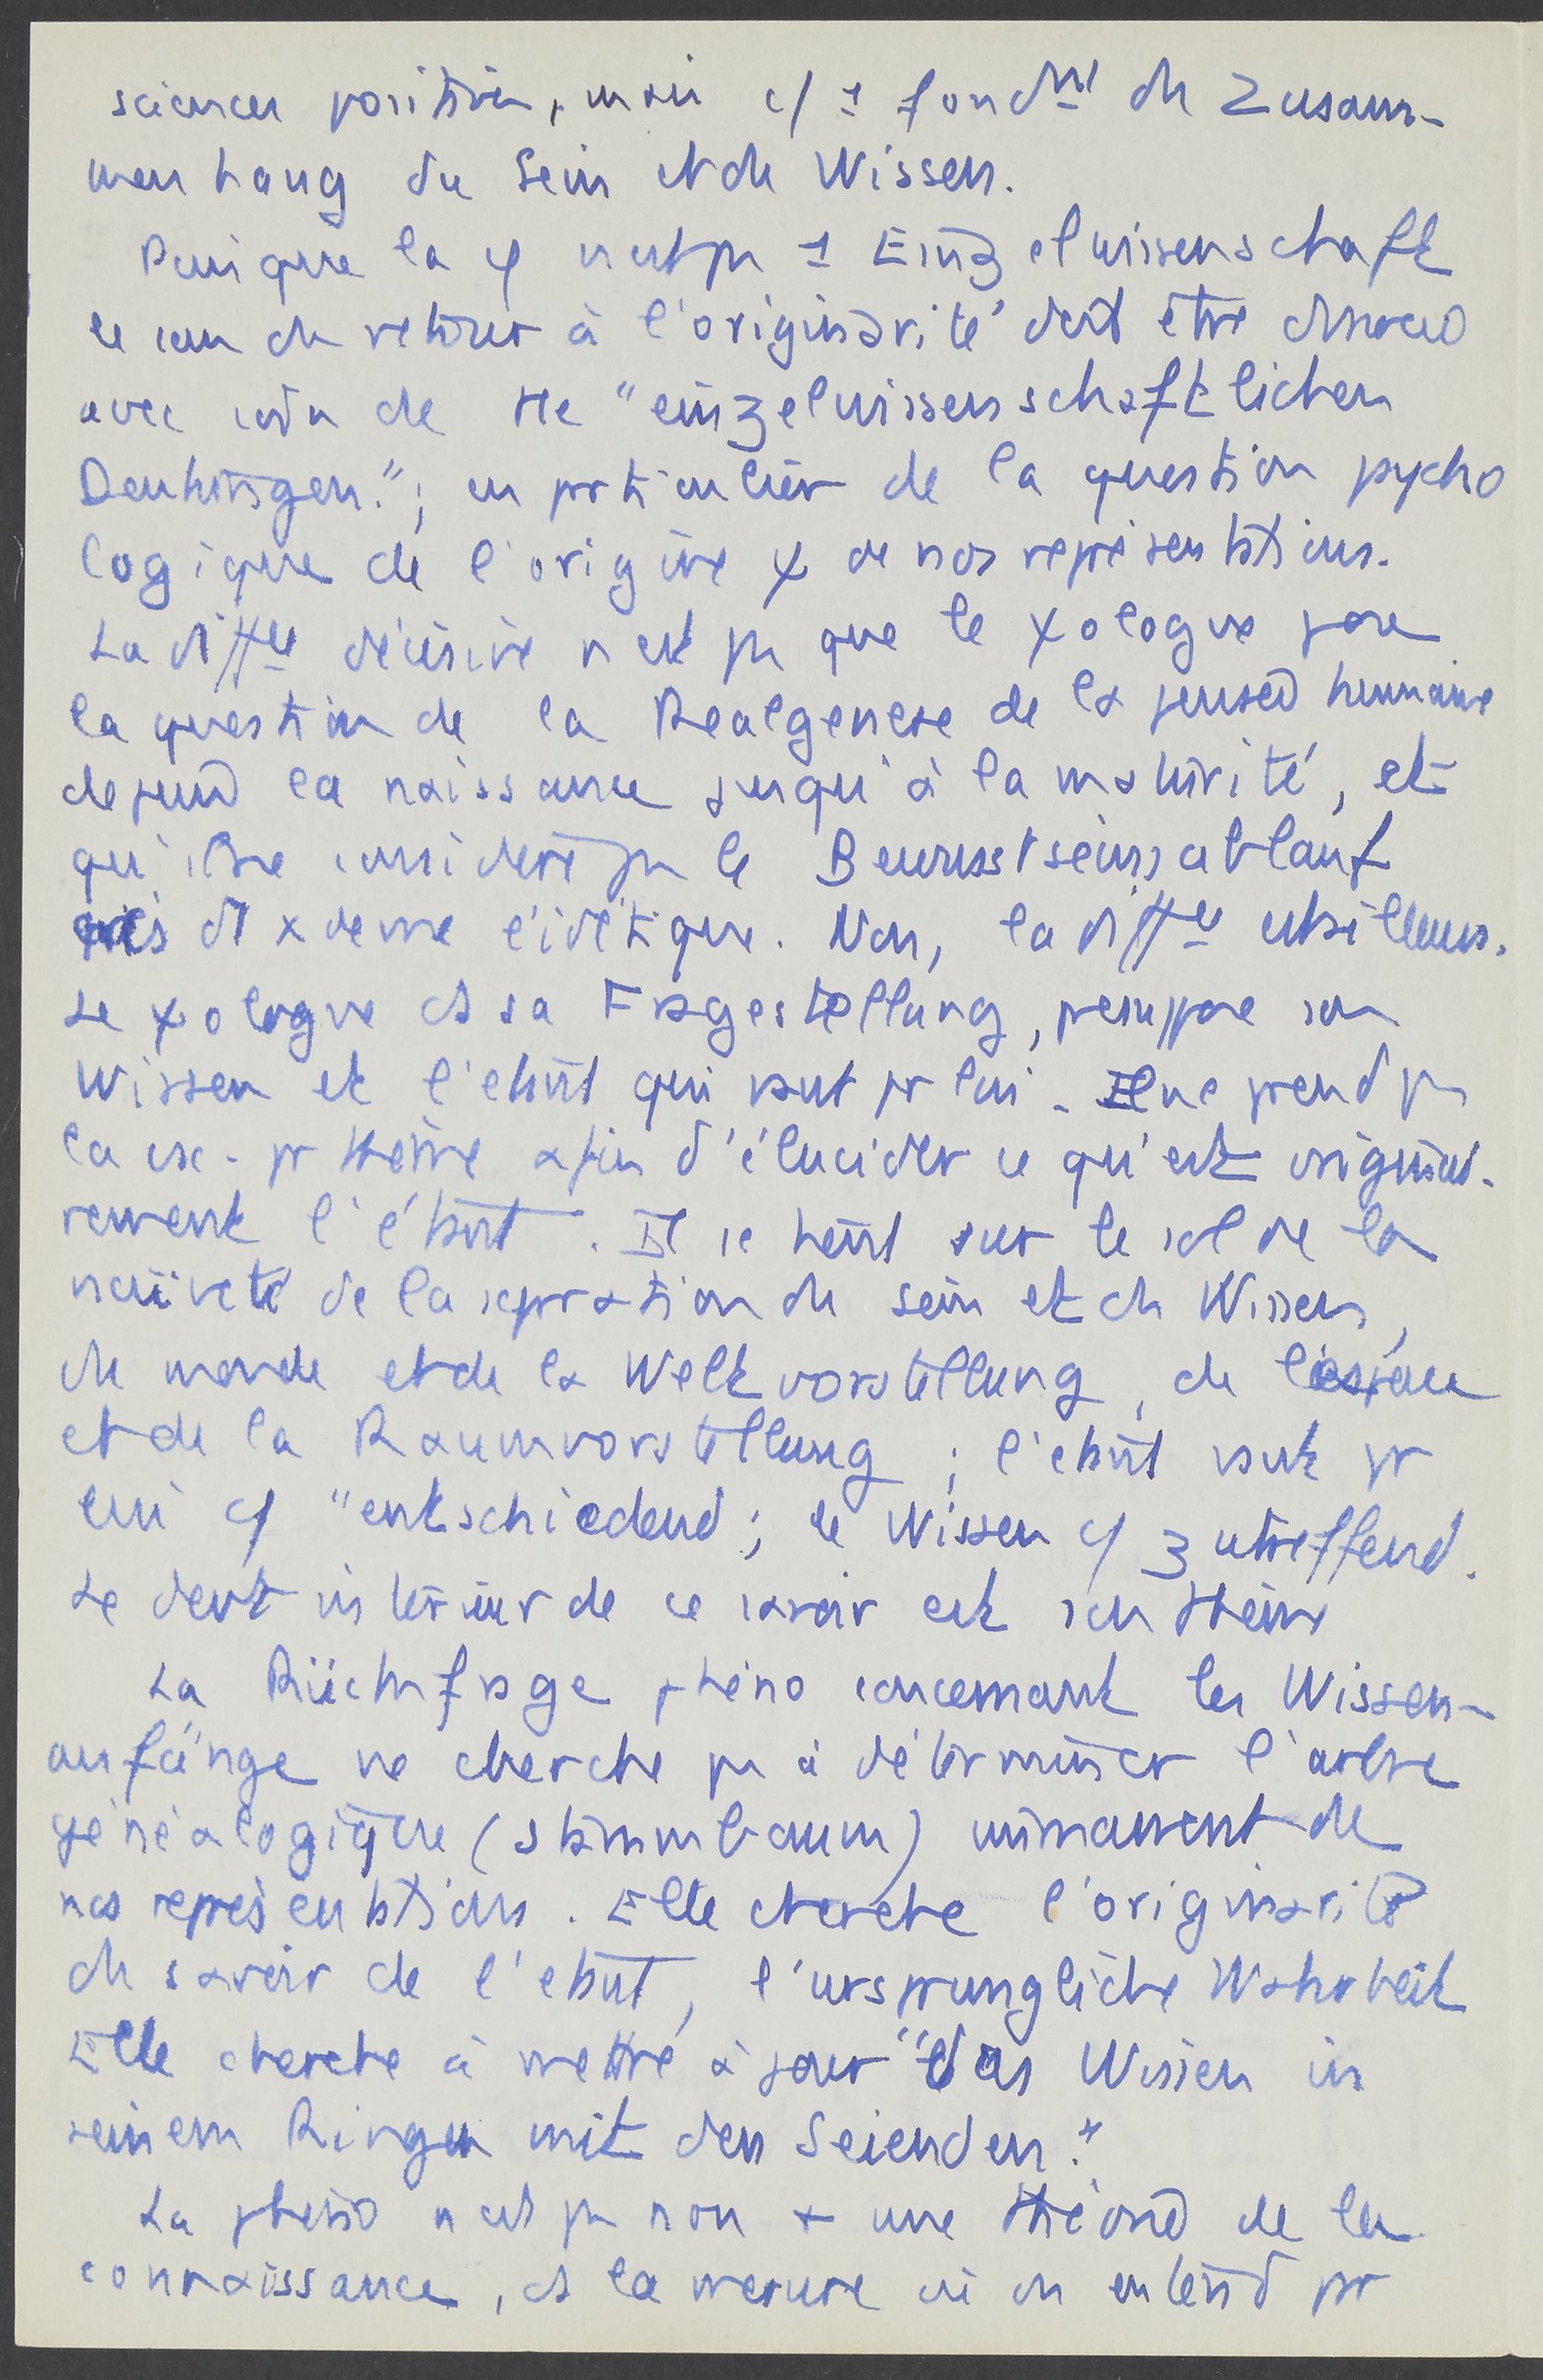 sciences positives, mais c/ 1 fondmt du Zusam-
menhang du Sein et du Wissen.
Puisque la φ n'est pas 1 Einzelwissenschaft
le sens du retour à l'originarité doit être dissocié
avec soin de tte "einzelwissenschaftlichen
Deutungen."; en particulier de la question psycho
logique de l'origine ψ de nos représentations.
La diffce décisive n'est pas que le ψologue pose
la question de la Realgenese de la pensée humaine
depuis la naissance jusqu'à la maturité, et
qu'il ne considère pas le Bewusstseinsablauf
eidétique. Non, la diffce est ailleurs.
Le ψologue ds sa Fragestellung, présuppose son
Wissen et l'étant qui vaut pr lui. Il ne prend pas
la csc. pr thème afin d'élucider ce qu'est originai-
rement l'étant. Il se tient sur le sol de la
naïveté de la séparation du Sein et du Wissen,
du monde et de la Weltvorstellung, de l'espace
et de la Raumvorstellung; l'étant vaut pr
lui c/ "entschiedend; le Wissen c/ zutreffend.
Le dedt intérieur de ce savoir est son thème
La Rückfrage phéno concernant les Wissen-
anfänge ne cherche pas à déterminer l'arbre
généalogique (Stammbaum) immanent de
nos représentations. Elle cherche l'originarité
du savoir de l'étant, l'ursprungliche Wahrheit
Elle cherche à mettre à jour "das Wissen in
seinem Ringen mit den Seienden."
La phéno n'est pas non + une théorie de la
connaissance, ds la mesure où on entend par